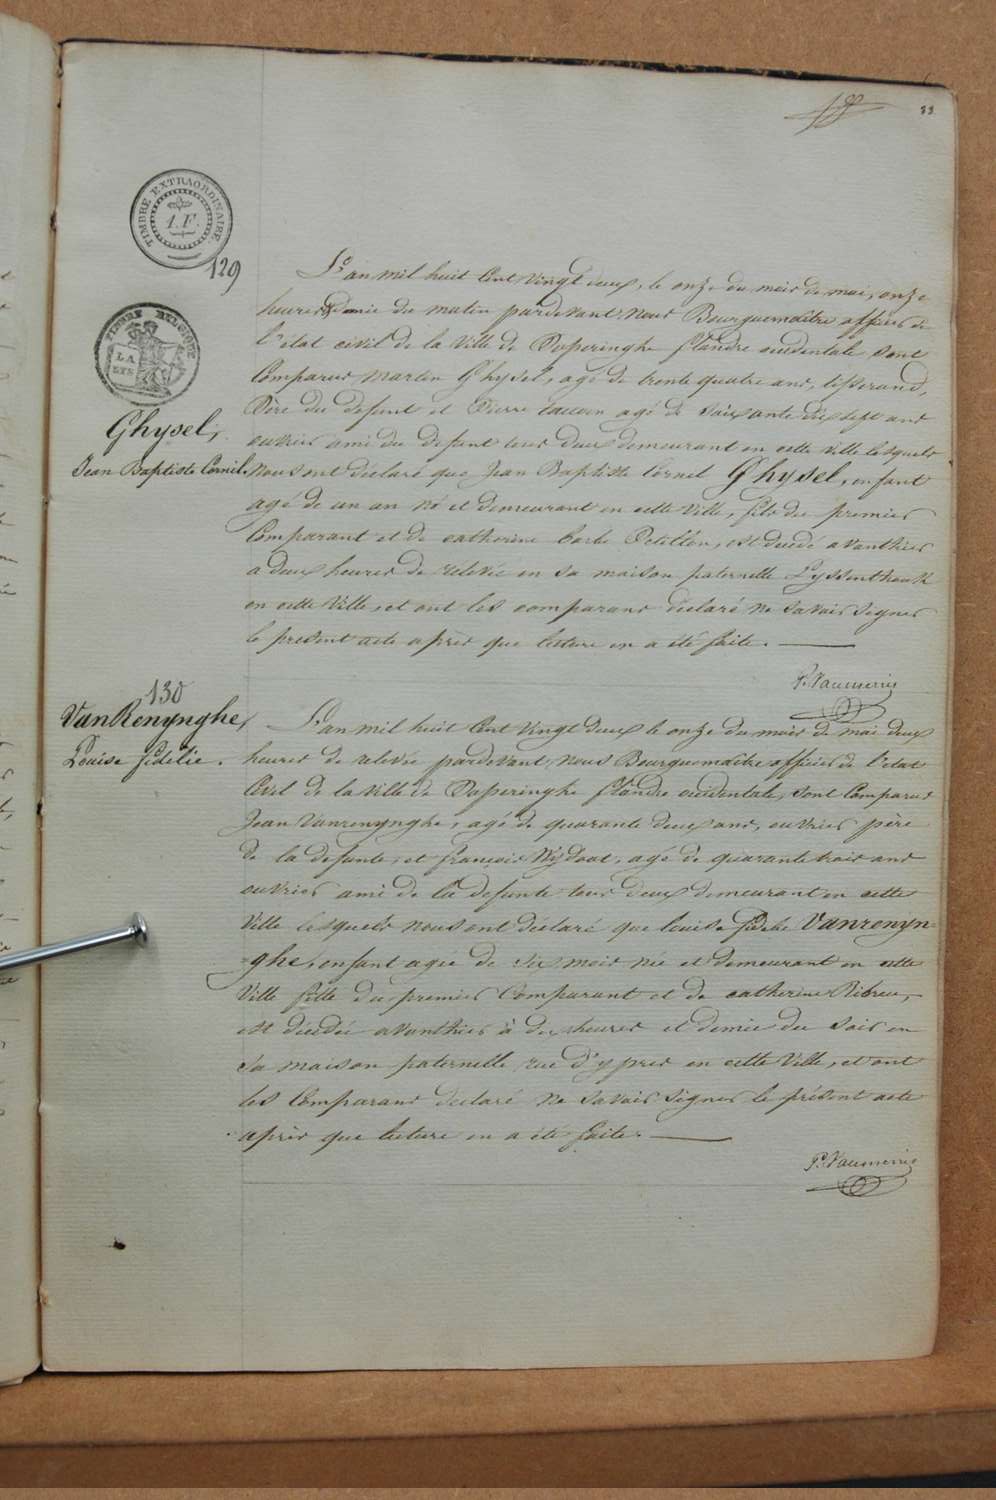 33
TIMBRE EXTRAORDINAIRE
1. F.
129
L'an mil huit Cent Vingt deux, le onze du mois de mai, onze
heures & demie du matin pardevant nous Bourguemaître officier de
l'état civil de la Ville de Poperinghe flandre occidentale sont
Comparus Martin Ghysel, agé de trente quatre ans, tisserand,
Père du defunt et Pierre agé de soixante dix sept ans
ouvrier ami du defunt tous deux demeurant en cette ville lesquels
LA LYS
Ghysel,
Jean Baptiste Cornil.
nous ont déclaré que Jean Baptiste Cornil Ghysel, enfant
agé de un an né et demeurant en cette Ville, fils du premier
Comparant et de catherine barbe est decedé avanthier
a deux heures de relevée en sa maison paternelle
en cette Ville, et ont les comparans déclaré ne savoir signer
le present acte après que lecture en a été faite.
P. Vanmerris
130
VanRenynghe,
Louise fidelie.
L'an mil huit Cent Vingt deux le onze du mois de mai deux
heures de relevée pardevant nous Bourguemaître officier de l'etat
Civil de la Ville de Poperinghe flandre occidentale, sont Comparus
Jean Vanrenynghe, agé de quarante deux ans, ouvrier père
de la defunte, et françois Wydoot, agé de quarante trois ans
ouvrier ami de la defunte tous deux demeurant en cette
Ville lesquels nous ont déclaré que louise fidelie Vanrenyn=
=ghe, enfant agée de six mois née et demeurant en cette
Ville fille du premier Comparant et de catherine
est décédée avanthier à dix heures et demie du soir en
sa maison paternelle rue d'ypres en cette Ville, et ont
les Comparans declaré ne savoir signer le présent acte
après que lecture en a été faite.
P. Vanmerris